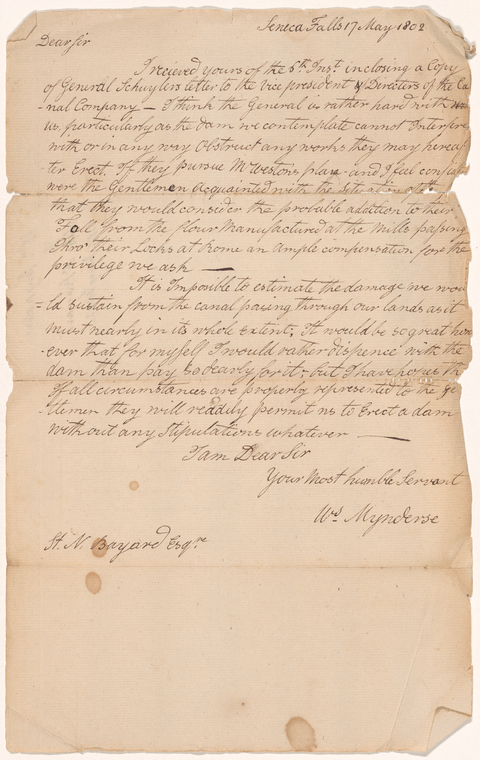 Seneca Falls 17 May 1802
Dear Sir
I recieved yours of the 5th Inst. inclosing a Copy
of General Schuylers letter to the Vice president & Directors of the Ca
-nal Company — I think the General is rather hard with
us, particularly as the dam we contemplate cannot Interfere
with or in any way Obstruct any works they may hereaf
-ter Erect. If they pursue Mr Westons plan - and I feel
were the Gentlemen Acquainted with the situation of
that they would consider the probable addition to their
Toll from the flour Manufactured at the Mills passing
Thro' their Locks at Rome an Ample compensation for the
privilege we ask —
It is Imposible to estimate the damage we wou
=ld sustain from the canal passing through our lands as it
must nearly in its whole extent; It would be so great how
ever that for myself I would rather dispence with the
dam than pay so dearly for it; but I have hopes th
If all circumstances are properly represented to the Ge
-tlemen they will readily permit us to Erect a dam
without any stipulations whatever —
I am Dear Sir
Your Most humble Servant
Ws. Mynderse
S. N. Bayard Esqre